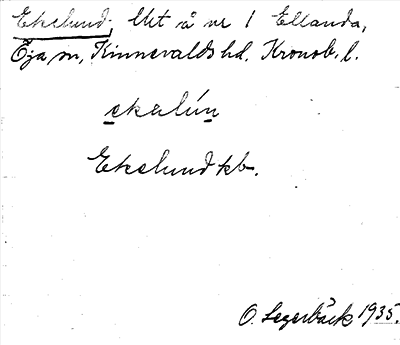 Ekelund, lht å nr 1 Ellanda,
Öja sn, Kinnevalds hd, Kronob. l.
ekelún
Ekelund kb.
O. Segerbäck 1935.